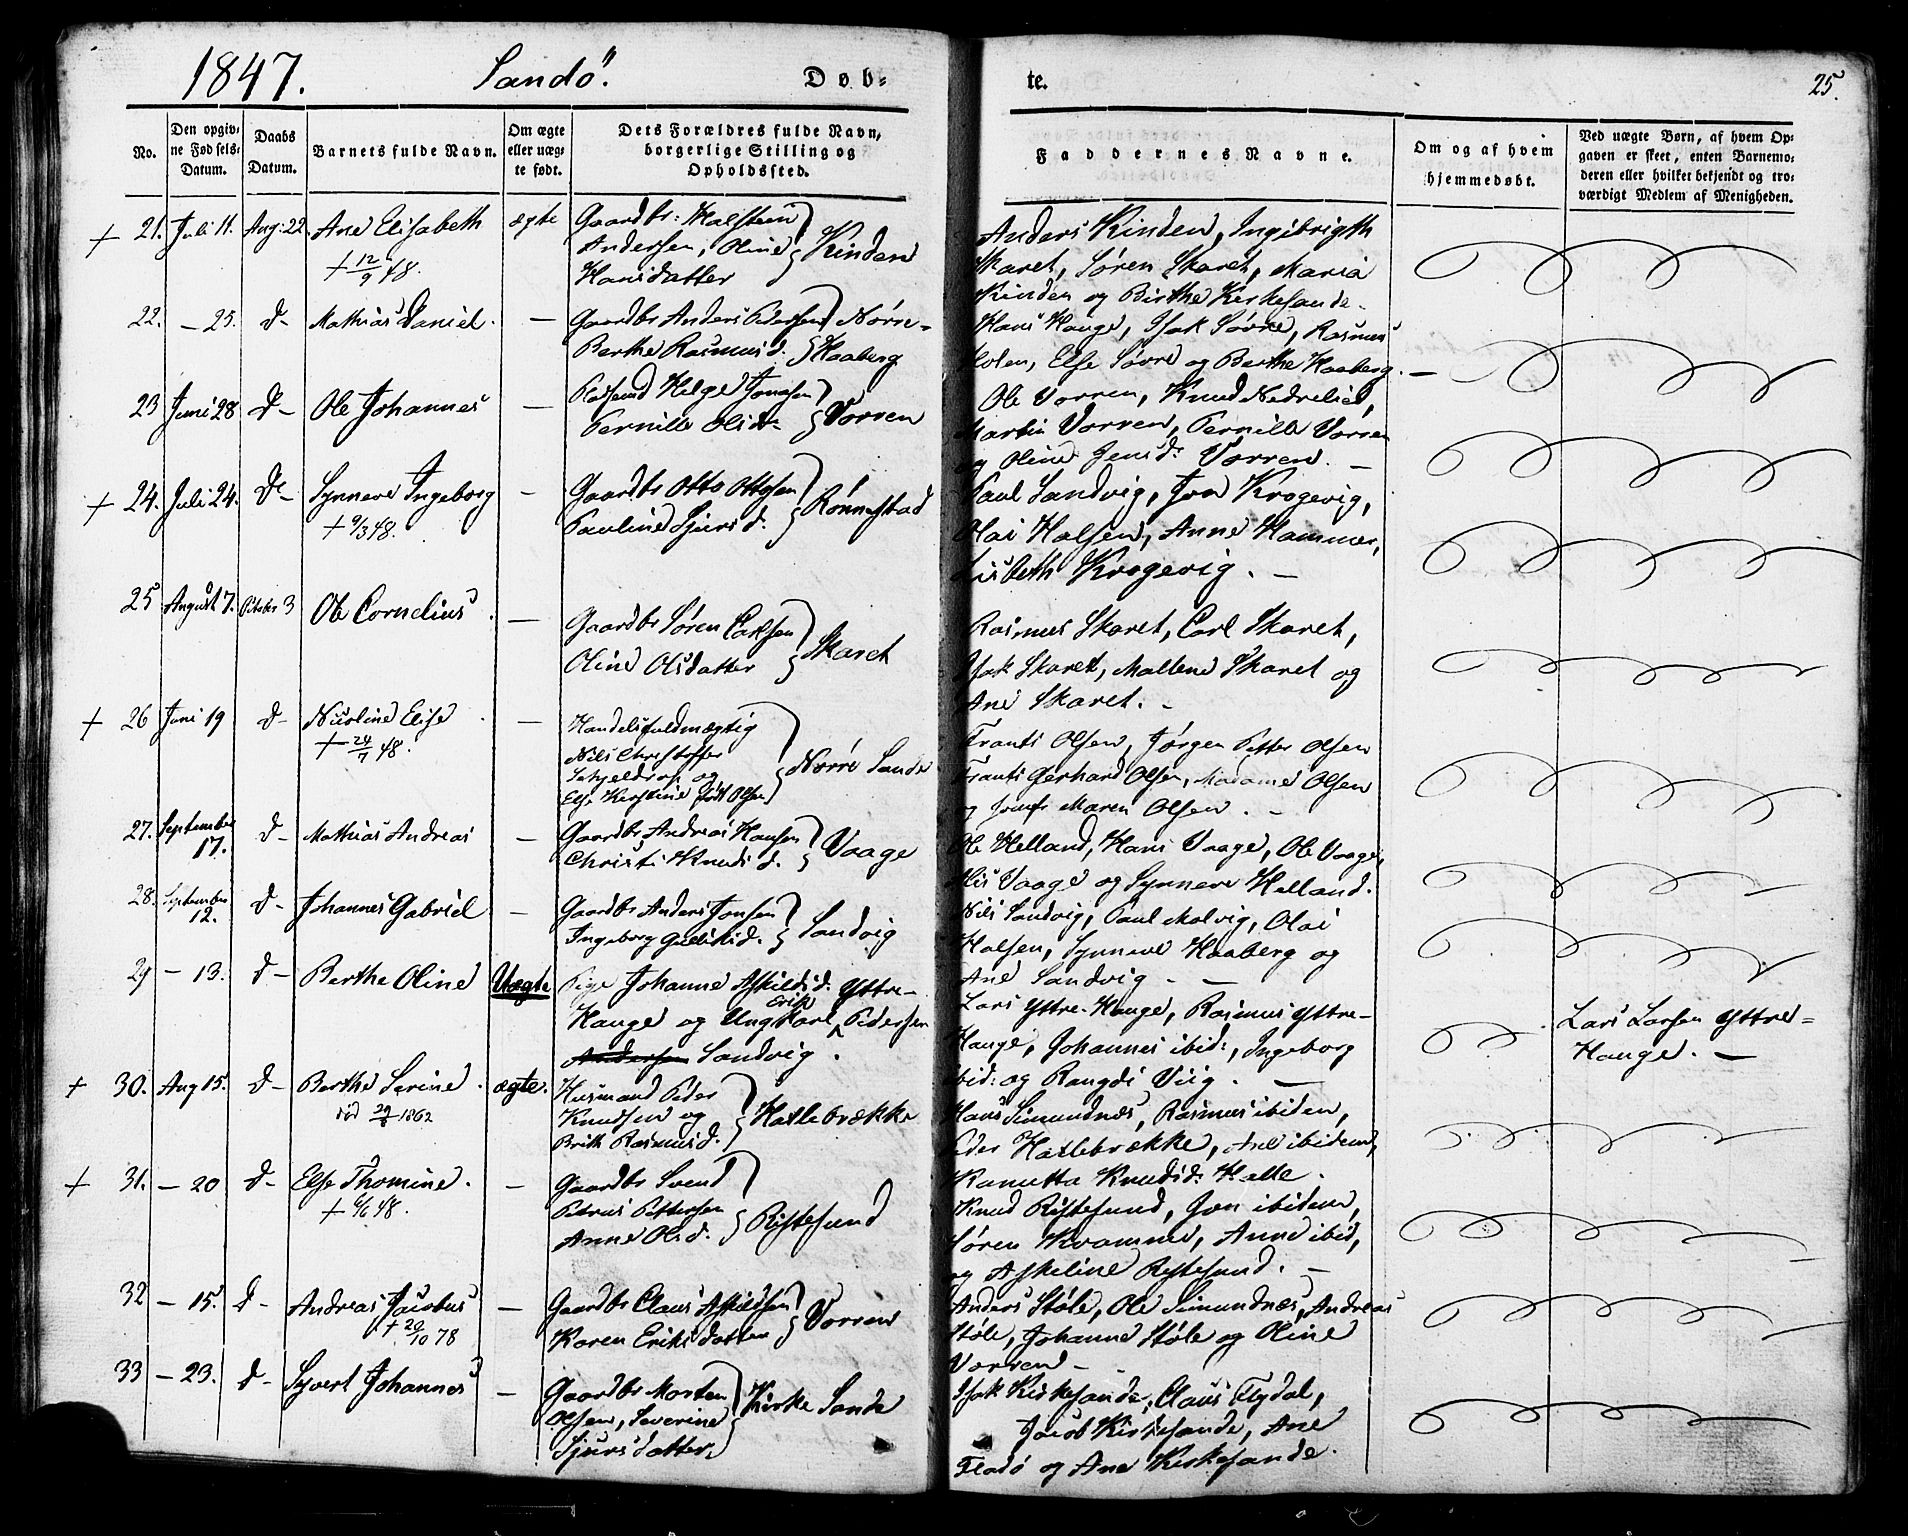 1847. Sandö. Døb-
te. 25.
No. Den opgiv-
ne Fødsels-
Datum. Daabs
Datum. Barnets fulde Navn. Om ægte
eller uæg-
te født. Dets Forældres fulde Navn,
borgerlige Stilling og
Opholdssted.
Faddernes Navne. Om og af hvem
hjemmedøbt. Ved uægte Børn, af hvem Op-
gaven er skeet, enten Barnemo-
deren eller hvilket bekjendt og tro-
værdigt Medlem af Menigheden.
+ 21. Juli 11. Aug: 22. Ane Elisabeth ægte Gaardbr: Halsteen
+ 12/9 48. Andersen, Oline Kinden
Hansdatter
Anders Kinden, Ingebrigth
Skaret, Søren Skaret, Maria
Kinden og Birthe Kirkesande.
22. — 25. d- Mathias Daniel. — Gaardbr Anders Pedersen Nørre-
Berthe Rasmusd. Haaberg
Hans Hauge, Isak Søvre, Rasmus
Holen, Else Søvre og Berthe Haaberg. —
23 Juni 28 d- Ole Johannes — Helge Jonsen
Pernille Olsdr Vorren
Ole Vorren, Knud Nedrelied,
Martin Vorren, Pernille Vorren
og Oline Jensd: Vorren. —
+ 24. Juli 24. d- Synneve Ingeborg — Gaardbr Otto Ottosen
+ 9/3 48. Pauline Sjursd. Rønnestad
Paul Sandvig, Jon Krogevig,
Olai Halsen, Anne Hammer,
Lisbeth Krogevig. —
25 August 7. October 3 Ole Cornelius. — Gaardbr Søren Carlsen
Oline Olsdatter Skaret
Rasmus Skaret, Carl Skaret,
Isak Skaret, Maltene Skaret og
Ane Skaret. -
+ 26 Juni 19 d- Nicoline Elise. — Handelsfuldmægtig
+ 24/7 48. Nils Christoffer
Schjeldrop og Nørre Sande
Else Kirstine født Olsen
Frants Olsen, Jørgen Petter Olsen
Frants Gerhard Olsen, Madame Olsen
og Jomfr Maren Olsen. -
27. September
17. d- Mathias Andreas — Gaardbr Andreas Hansen
Christi Knudsd. Vaage
Ole Helland, Hans Vaage, Ole Vaage,
Nis Vaage og Synneve Helland.
28. September
12. d- Johannes Gabriel — Gaardbr Anders Jonsen
Ingeborg Gullikd. Sandvig
Nils Sandvig, Paul Malvig, Olai
Halsen, Synneve Haaberg og
Ane Sandvig. —
29 — 13. d- Berthe Oline Uægte Pige Johanne Askildsd. Yttre-
Hauge og Ungkarl Erik Pedersen
Andersen Sandvig.
Lars Yttre-Hauge, Rasmus Yttre-
Hauge, Johannes ibid:, Ingeborg
ibid: og Rangdi Viig. —
Lars Larsen Yttre-
Hauge. —
+ 30. Aug 15. d- Berthe Serine. ægte. Husmand Peder
død 29/8 1862 Knudsen og Hatlebrække
Brith Rasmusd.
Hans Simundnæs, Rasmus ibiden,
Peder Hatlebrække, Ane ibidem,
Kanutta Knudsd: Hatle.
+ 31. — 20 d- Else Thomine. — Gaardbr Svend
+ 6/6 48. Petrus Pettersen
Anne Olsd. Ristesund
Knud Ristesund, Jon ibidem,
Søren Kvamme, Anne ibid,
og Askeline Ristesund. —
32 — 15. d- Andreas Jacobus — Gaardbr Claus Askildsen
+ 20/10 78 Karen Eriksdatter Vorren
Anders Støle, Ole Simundnæs, Andreas
Støle, Johanne Støle og Oline
Vorren —
33 — 23. d- Syvert Johannes — Gaardbr Morten
Olsen, Severine Kirke Sande
Sjursdatter.
Isak Kirkesande, Claus Flydal,
Jacob Kirkesande, Ane
Fladø og Ane Kirkesande.